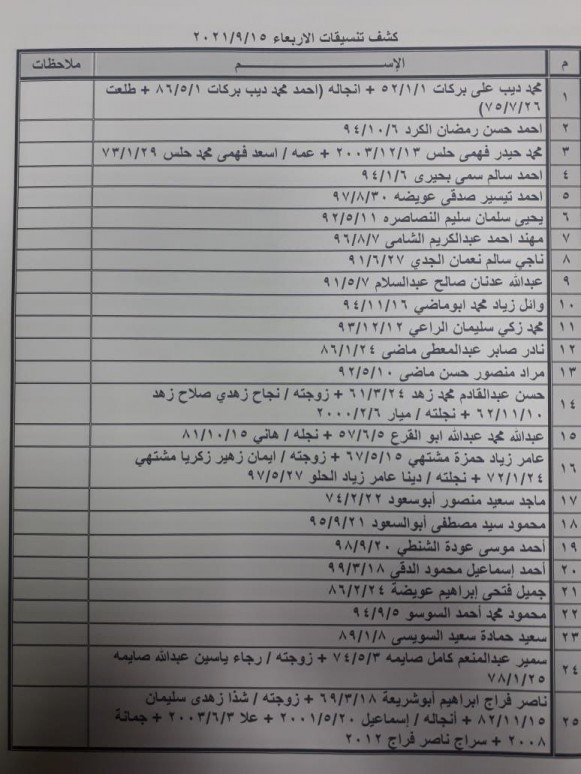 كشف تنسيقات الاربعاء ٢٠٢١/٩/١٥
م الإســـــم ملاحظات
١ محمد ديب على بركات ٥٢/١/١ + انجاله (احمد محمد ديب بركات ٨٦/٥/١ + طلعت
٧٥/٧/٢٦)
٢ احمد حسن رمضان الكرد ٩٤/١٠/٦
٣ محمد حيدر فهمى حلس ٢٠٠٣/١٢/١٣ + عمه / اسعد فهمى محمد حلس ٧٣/١/٢٩
٤ احمد سالم سمى بحيرى ٩٤/١/٦
٥ احمد تيسير صدقى عويضه ٩٧/٨/٣٠
٦ يحيى سلمان سليم النصاصره ٩٢/٥/١١
٧ مهند احمد عبدالكريم الشامى ٩٦/٨/٧
٨ ناجي سالم نعمان الجدي ٩١/٦/٢٧
٩ عبدالله عدنان صالح عبدالسلام ٩١/٥/٧
١٠ وائل زياد محمد ابوماضي ٩٤/١١/١٦
١١ محمد زكي سليمان الراعي ٩٣/١٢/١٢
١٢ نادر صابر عبدالمعطى ماضى ٨٦/١/٢٤
١٣ مراد منصور حسن ماضى ٩٢/٥/١٠
١٤ حسن عبدالقادم محمد زهد ٦١/٣/٢٤ + زوجته / نجاح زهدي صلاح زهد
٦٢/١١/١٠ + نجلته / ميار ٢٠٠٠/٢/٦
١٥ عبدالله محمد عبدالله ابو القرع ٥٧/٦/٥ + نجله / هاني ٨١/١٠/١٥
١٦ عامر زياد حمزة مشتهي ٦٧/٥/١٥ + زوجته / ايمان زهير زكريا مشتهي
٧٢/١/٢٤ + نجلته / دينا عامر زياد الحلو ٩٧/٥/٢٧
١٧ ماجد سعيد منصور أبوسعود ٧٤/٢/٢٢
١٨ محمود سيد مصطفى أبوالسعود ٩٥/٩/٢١
١٩ أحمد موسى عودة الشنطي ٩٨/٩/٢٠
٢٠ أحمد إسماعيل محمود الدقى ٩٩/٣/١٨
٢١ جميل فتحى إبراهيم عويضة ٨٦/٢/٢٤
٢٢ محمود محمد أحمد السوسو ٩٤/٩/٥
٢٣ سعيد حمادة سعيد السويسى ٨٩/١/٨
٢٤ سمير عبدالمنعم كامل صايمه ٧٤/٥/٣ + زوجته / رجاء ياسين عبدالله صايمه
٧٨/١/٢٥
٢٥ ناصر فراج ابراهيم أبوشريعة ٦٩/٣/١٨ + زوجته / شذا زهدى سليمان
٨٢/١١/١٥ + أنجاله / إسماعيل ٢٠٠١/٥/٢٠ + علا ٢٠٠٣/٦/٣ + جمانة
٢٠٠٨ + سراج ناصر فراج ٢٠١٢